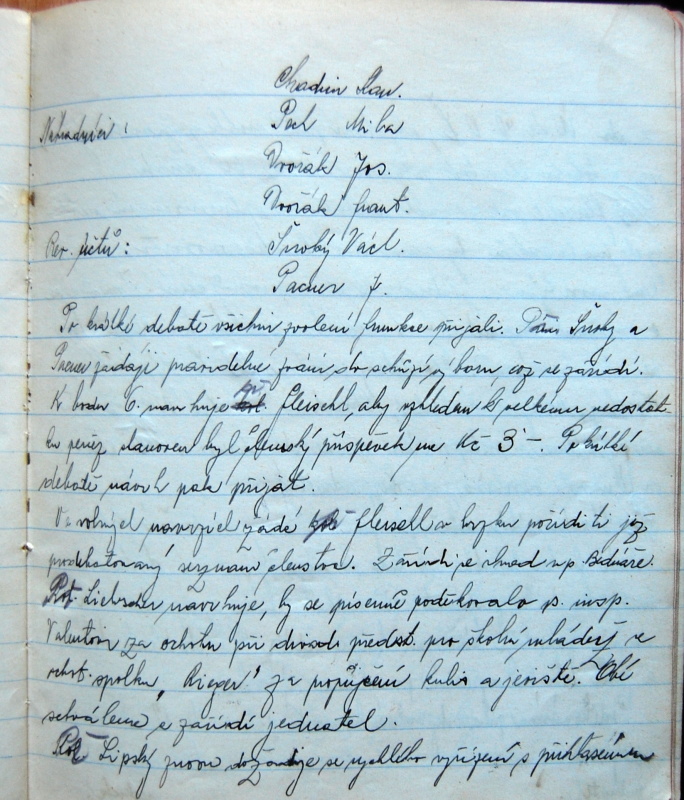 Chadim Slav.
Náhradníci : Pech Mila
Dvořák Jos.
Dvořák Frant.
Rev. účtů : Široký Václ.
Pacner J.
Po krátké debatě všichni zvolení funkce přijali. Páni Široký a
Pacner žádají pravidelné zvaní do schůzí výboru což se zařídí.
K bodu 6. navrhuje př. Fleischl, aby vzhledem k velkému nedostat-
ku peněz stanoven byl členský příspěvek na Kč 3 –. Po krátké
debatě návrh pak přijat.
Ve volných žádá Fleischl v brzku poříditi již
prodebatovaný seznam členstva. Zařídí je ihned u p. Bednáře.
Liebscher navrhuje, by se písemně poděkovalo p. insp.
Valentovi za ochotu při divadl. předst. pro školní mládež a
ochot. spolku „Rieger" za propůjčení kulis a jeviště. Obé
schváleno a zařídí jednatel.
Lipský znovu dožaduje se rychlého vyřízení s přihlášením